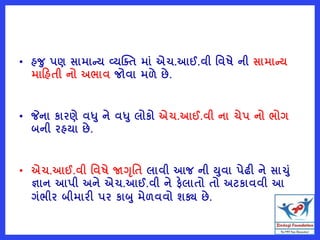 • હજુ પણ સામાન્ય વ્યક્તિ માં એચ.આઈ.વી વિષે ની સામાન્ય
માહિતી નો અભાવ જોવા મળે છે.
• જેના કારણે વધુ ને વધુ લોકો એચ.આઈ.વી ના ચેપ નો ભોગ
બની રહ્યા છે.
• એચ.આઈ.વી વિષે જાગૃતિ લાવી આજ ની યુવા પેઢી ને સાચું
જ્ઞાન આપી અને એચ.આઈ.વી ને ફેલાતો તો અટકાવવી આ
ગંભીર બીમારી પર કાબુ મેળવવો શક્ય છે.